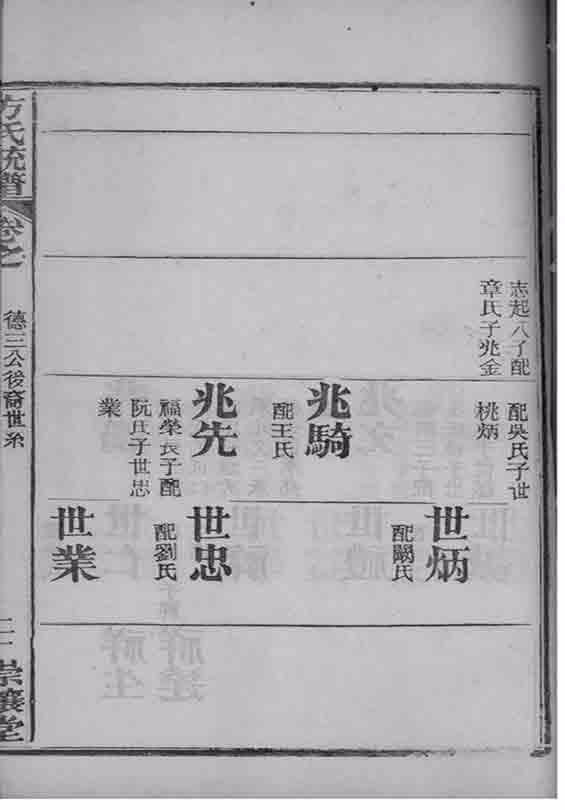 志起八子配
章氏子兆金
配吳氏子世
桃炳
兆騎
配王氏
兆先
福榮長子配
阮氏子世忠
業
世炳
配闕氏
世忠
配劉氏
世業
方氏統譜
卷之
德三公後裔世系
二十
崇讓堂